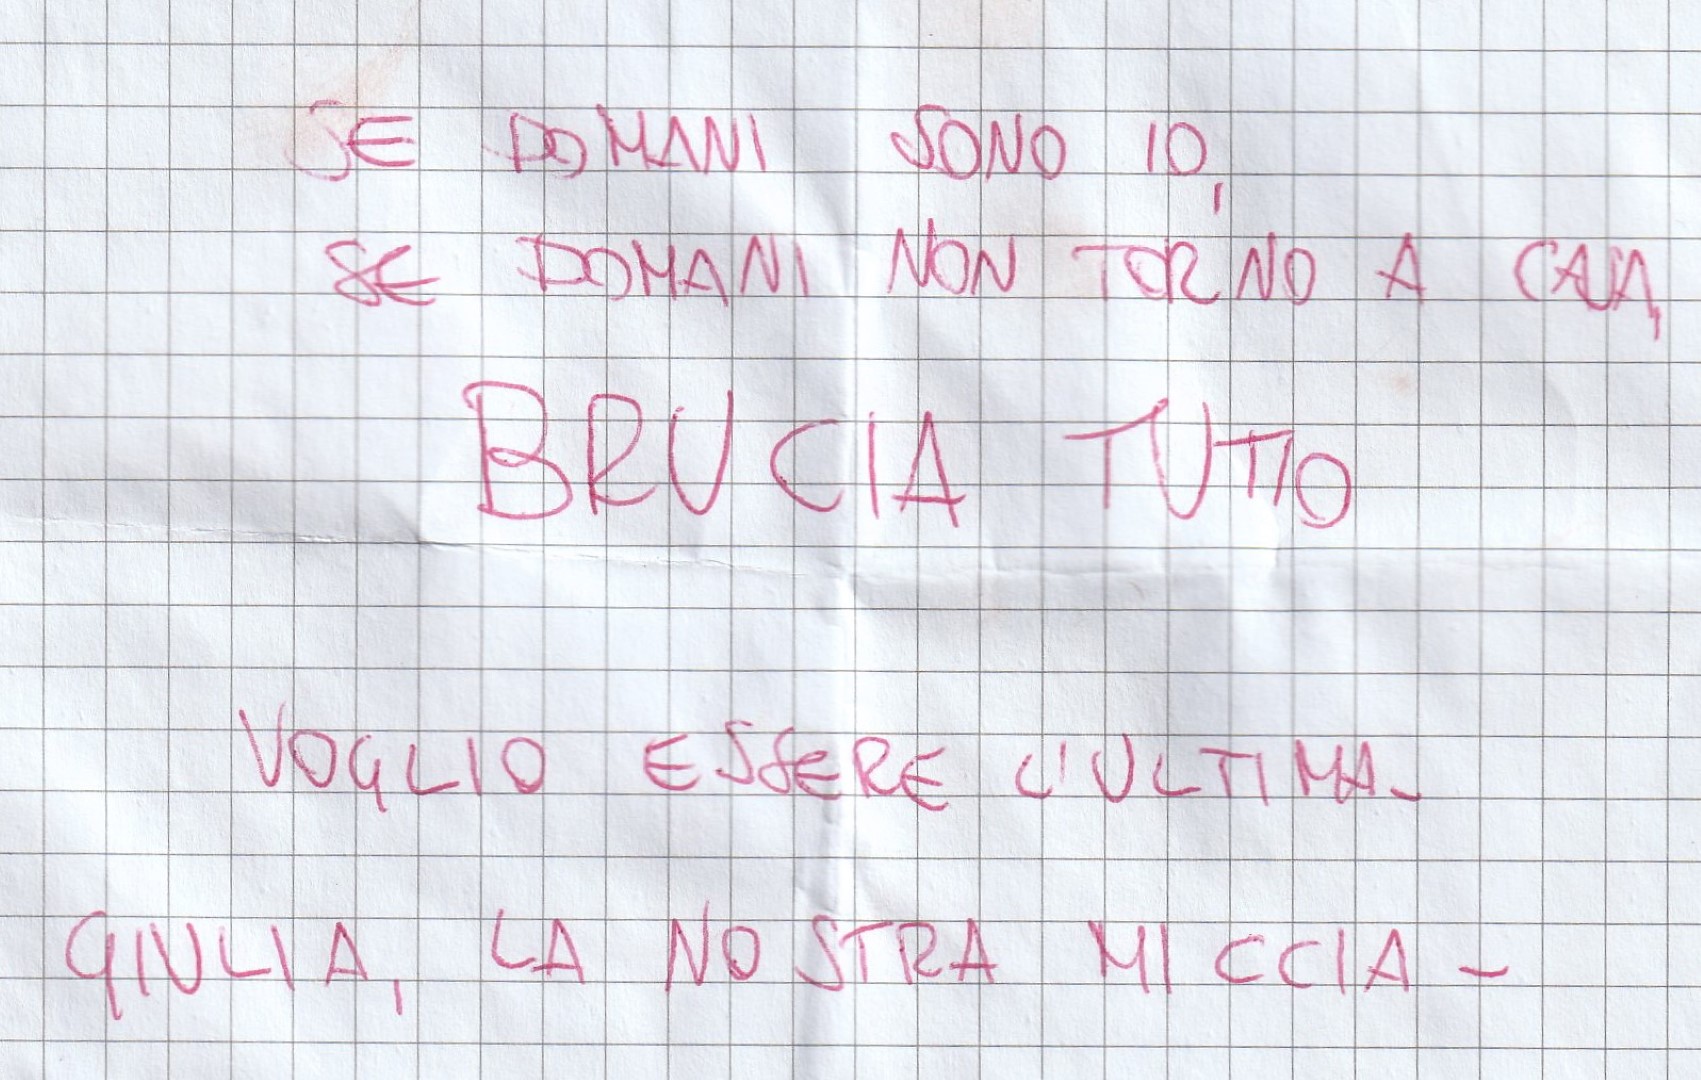 SE DOMANI SONO IO,
SE DOMANI NON TORNO A CASA,
BRUCIA TUTTO
VOGLIO ESSERE L'ULTIMA-
GIULIA, LA NOSTRA MICCIA -